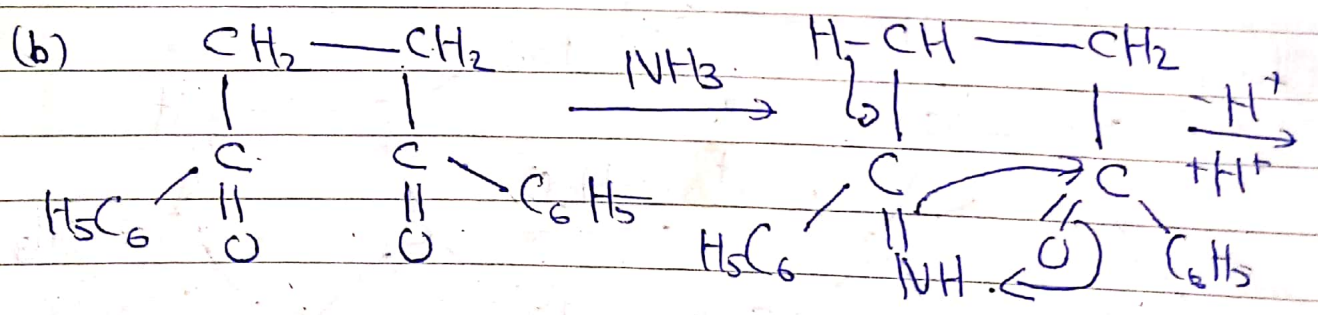 (b) CH₂ — CH₂ NH₃ H-CH — CH₂
-H⁺
C C C C +H⁺
H₅C₆ C₆H₅
O O H₅C₆ NH O C₆H₅